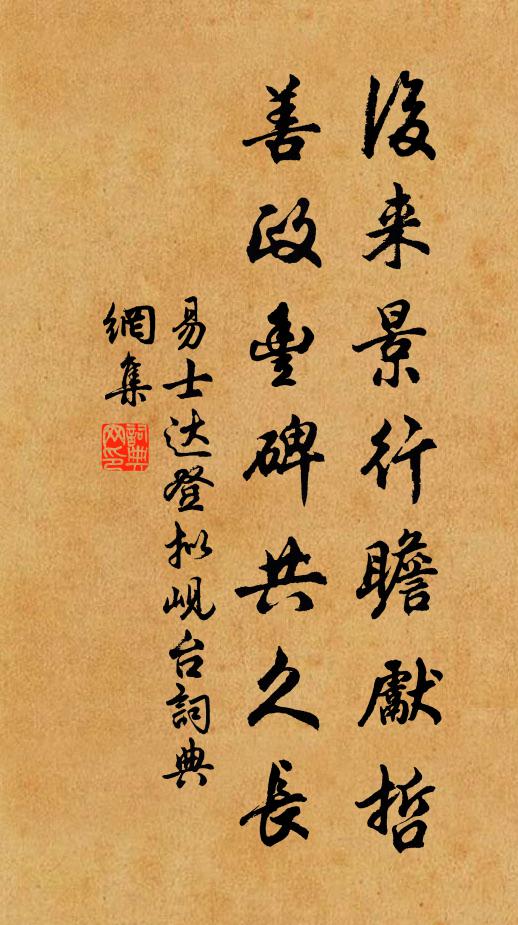 後来景行瞻獻哲
善政豊碑共久長
易士达登拟岘台詞典
網集
詞典网印